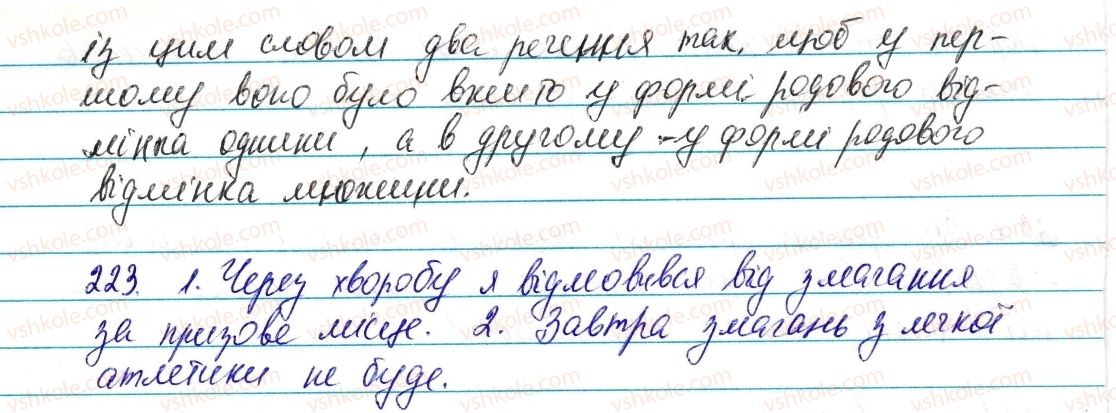 із цим словом два речення так, щоб у пер-
шому воно було вжито у формі родового від-
мінка однини, а в другому - у формі родового
відмінка множини.
223. 1. Через хворобу я відмовився від змагання
за призове місце. 2. Завтра змагань з легкої
атлетики не буде.